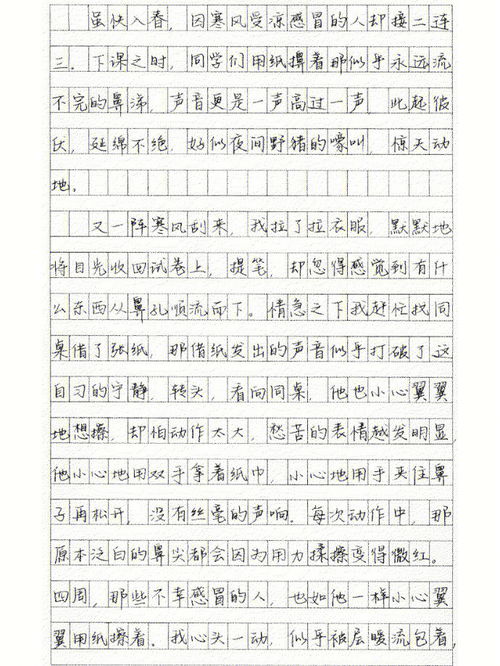 虽快入春，因寒风受凉感冒的人却接二连
三．下课之时，同学们用纸擤着那似乎永远流
不完的鼻涕，声音更是一声高过一声，此起彼
伏，延绵不绝，好似夜间野猪的嚎叫，惊天动
地．
又一阵寒风刮来，我拉了拉衣服，默默地
将目光收回试卷上，提笔，却忽得感觉到有什
么东西从鼻孔顺流而下。情急之下我赶忙找同
桌借了张纸，那借纸发出的声音似乎打破了这
自习的宁静，转头，看向同桌，他也小心翼翼
地想擦，却怕动作太大，愁苦的表情越发明显，
他小心地用双手拿着纸巾，小心地用手夹住鼻
子再松开，没有丝毫的声响．每次动作中，那
原本泛白的鼻尖都会因为用力揉擦变得微红。
四周，那些不幸感冒的人，也如他一样小心翼
翼用纸擦着．我心头一动，似乎被层暖流包着，